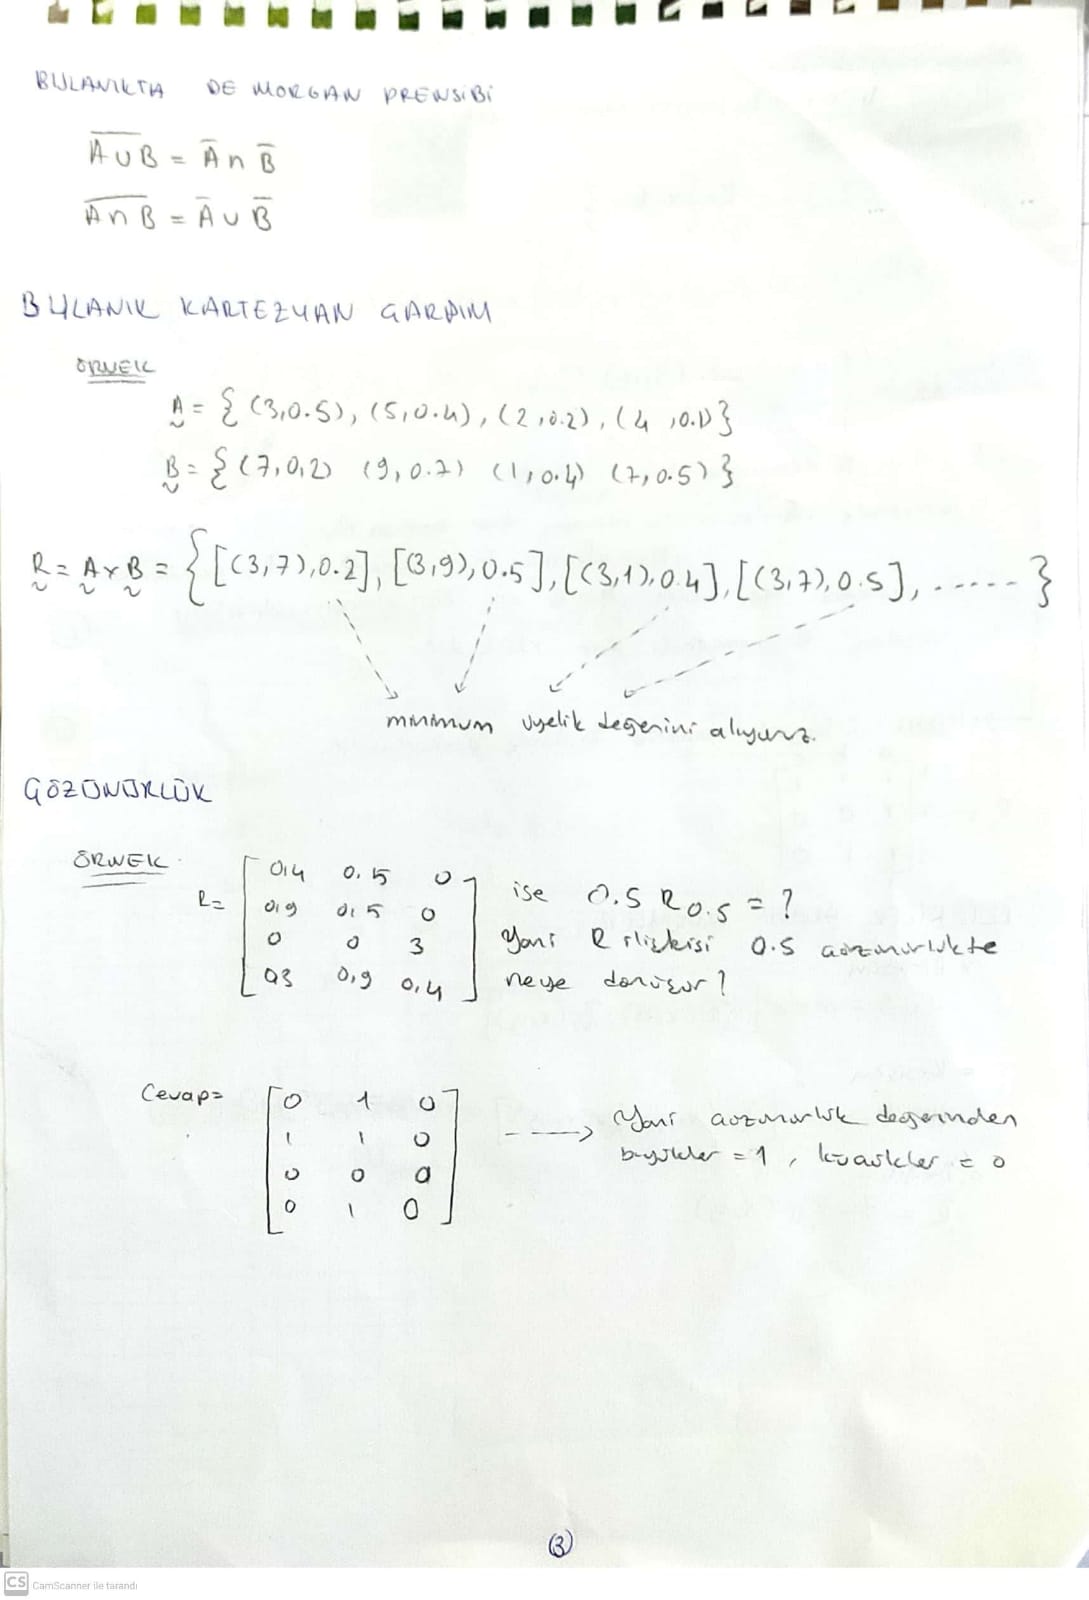 BULANIKTA DE MORGAN PRENSİBİ
A∪B̅ = A̅ ∩ B̅
A∩B̅ = A̅ ∪ B̅
BULANIK KARTEZYAN ÇARPIM
ÖRNEK
A = { (3,0.5), (5,0.4), (2,0.2), (4,0.1)}
B = { (7,0,2) (9,0.7) (1,0.4) (7,0.5) }
R = A x B = { [(3,7),0.2], [(3,9),0.5], [(3,1),0.4], [(3,7),0.5], ..... }
minimum üyelik değerini alıyoruz.
ÇÖZÜNÜRLÜK
ÖRNEK
R = [ 0,4 0.5 0
0,9 0,5 0
0 0 3
0,3 0,9 0,4 ]
ise 0.5 R0.5 = ?
Yani R ilişkisi 0.5 çözünürlükte
neye dönüşür?
Cevap = [ 0 1 0
1 1 0
0 0 0
0 1 0 ]
Yani çözünürlük değerinden
büyükler = 1 , küçükler = 0
3
CS CamScanner ile tarandı